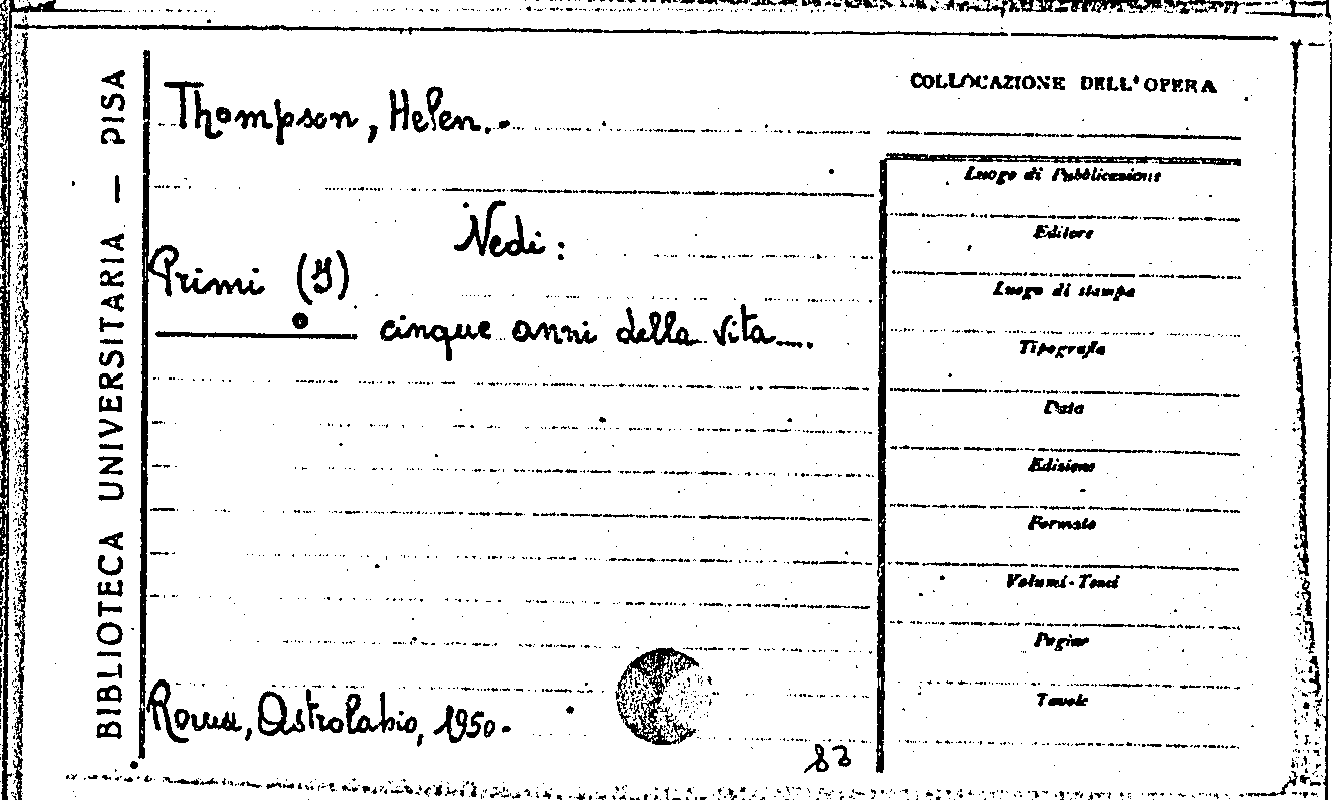 BIBLIOTECA UNIVERSITARIA — PISA
Thompson, Helen.-
Vedi:
Primi (I)
cinque anni della vita....
Roma, Astrolabio, 1950.
83
COLLOCAZIONE DELL'OPERA
Luogo di Pubblicazione
Editore
Luogo di stampa
Tipografia
Data
Edizione
Formato
Volumi-Tomi
Pagine
Tavole